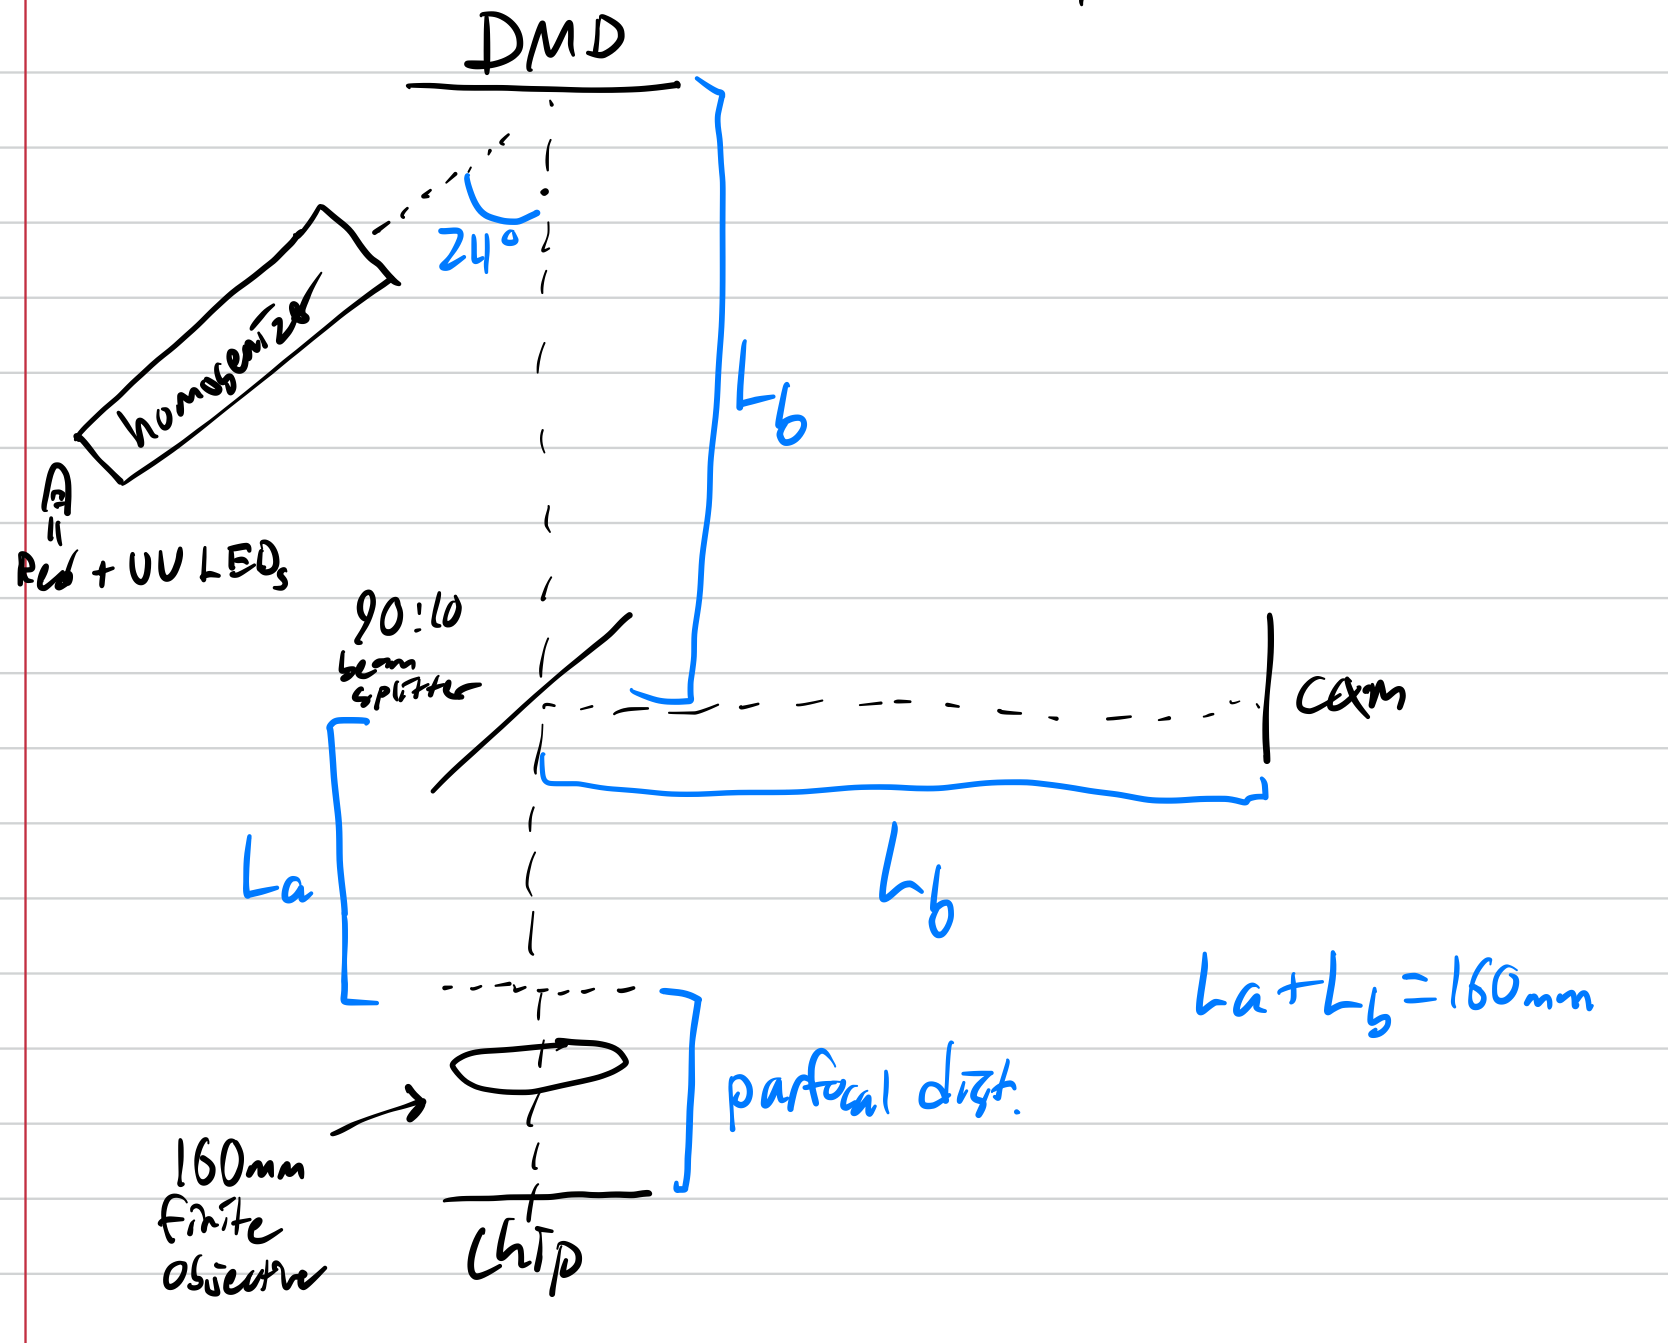 DMD
24°
homogenizer
Lb
A
=
Red + UV LEDs
90:10
beam
splitter
cam
La
Lb
La+Lb=160mm
parfocal dist.
160mm
finite
objective
chip